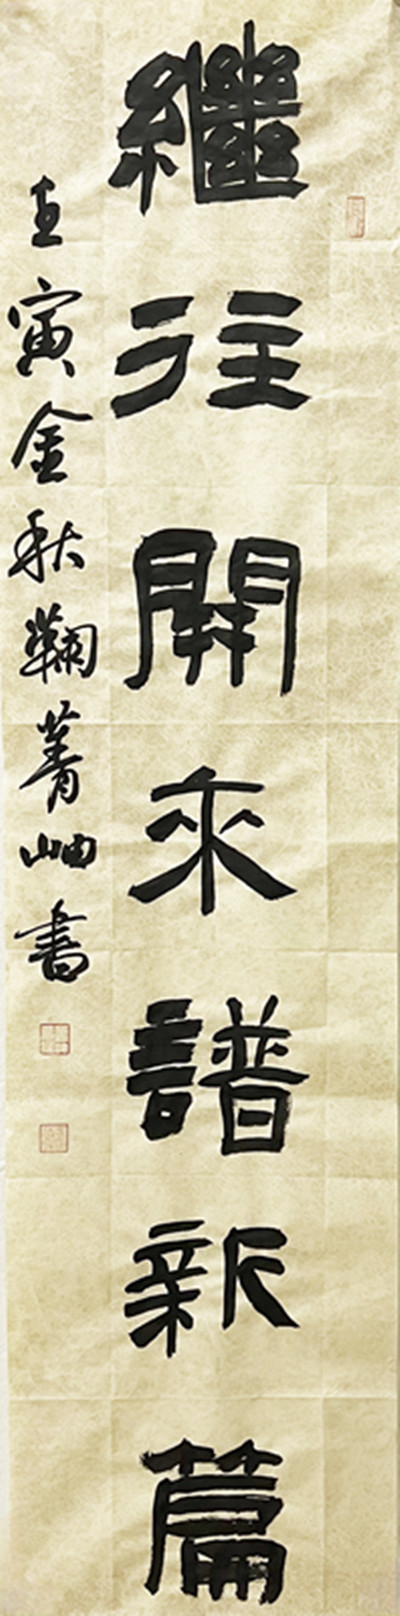 繼往開來譜新篇
壬寅金秋鞠菁岫書